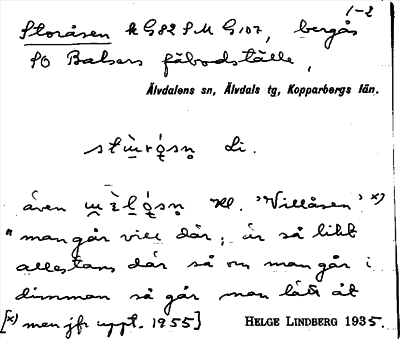 1-2
Storåsen k G82 S M G107, bergås
SO Balsers fäbodställe,
Älvdalens sn, Älvdals tg, Kopparbergs län.
di.
även Kl. "Villåsen". x)
"man går vill där; är så likt
allestans där så om man går i
dimman så går man lätt åt
[x) men jfr uppt. 1955] HELGE LINDBERG 1935.